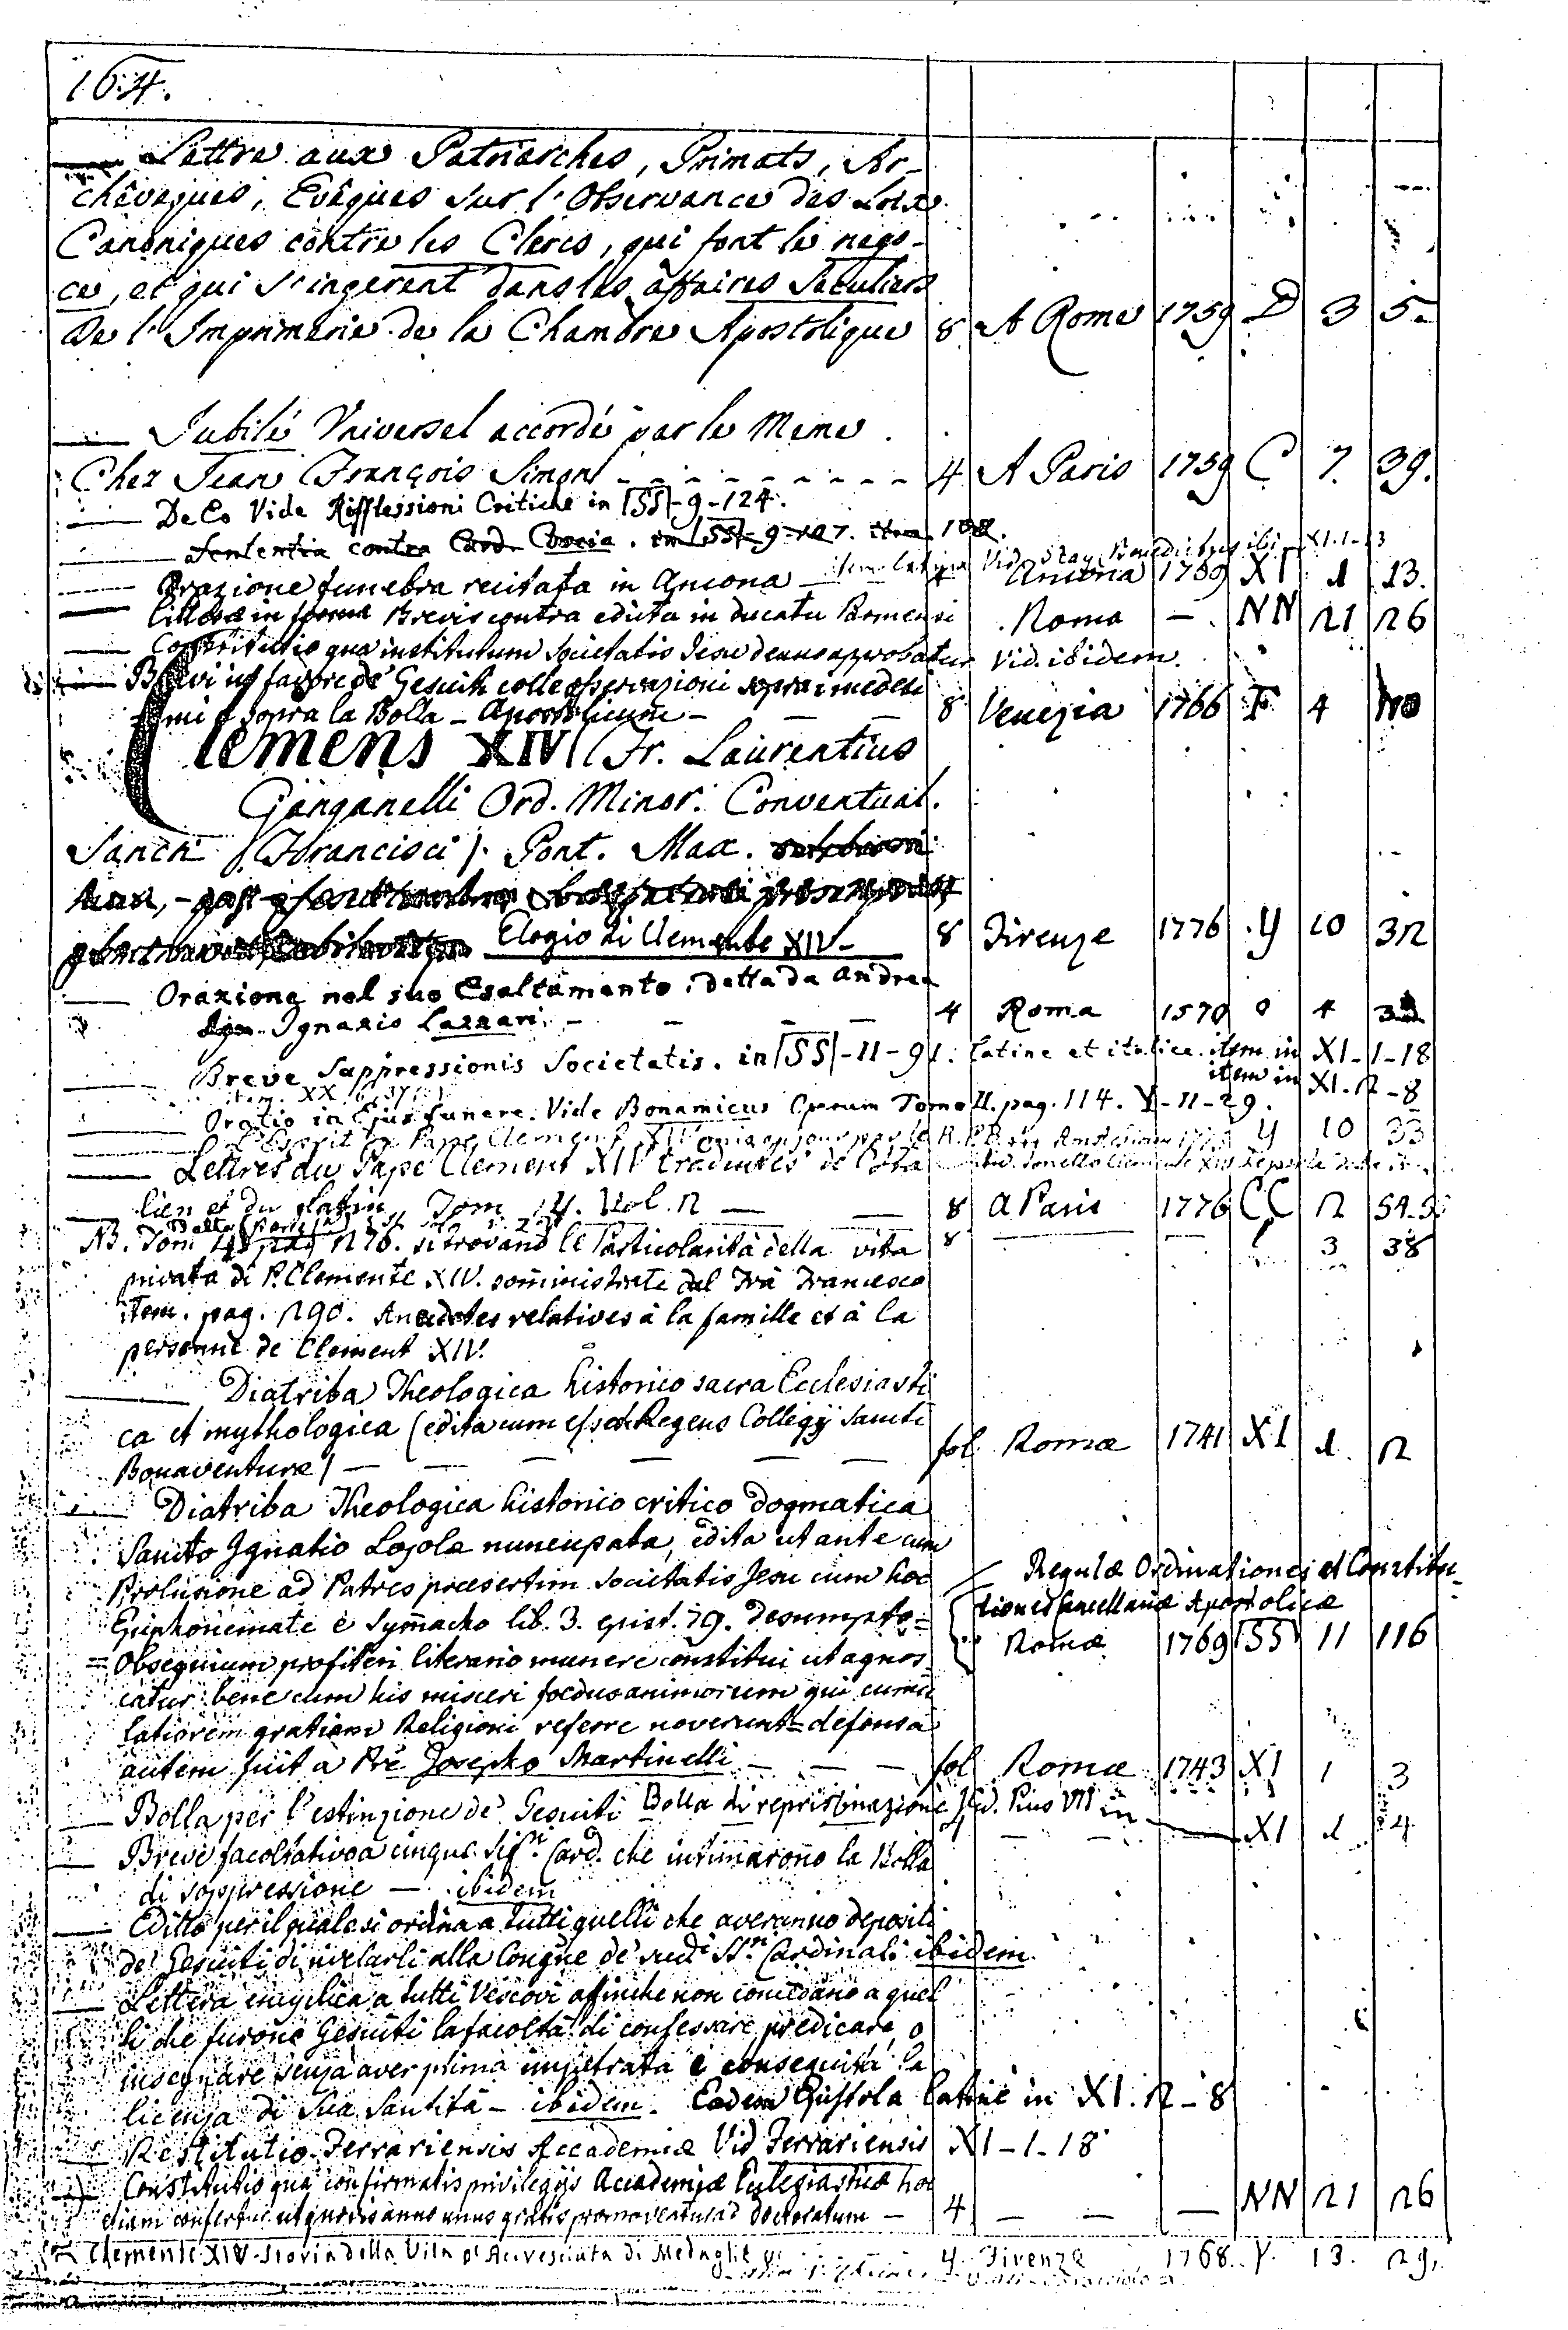 164.
Lettre aux Patriarches, Primats, Ar-
chêveques, Evêques sur l'Observance des Loix
Canoniques contre les Clercs, qui font le nego-
ce, et qui s'ingerent dans les affaires Seculiers
De l'Imprimerie de la Chambre Apostolique 8 A Rome 1759 D 3 5
Jubilé Universel accordé par le Meme.
Chez Jean François Simon 4 A Paris 1759 C 7. 39.
De Eo Vide Rifflessioni Critiche in SS-9-124.
Sententia contra Card. Coscia. in SS-9-127. item
Orazione funebra recitata in Ancona Ancona 1759 XI 1 13.
Litteræ in forma Brevis contra edicta in ducatu Parmensi Roma - NN 21 26
Constitutio qua institutum Societatis Iesu denuo aprobatur Vid. ibidem.
Brevi in favore de Gesuiti colle osservazioni sopra i medesi
mi e sopra la Bolla - Apostolicum - 8 Venezia 1766 F 4
Clemens XIV (Fr. Laurentius
Ganganelli Ord. Minor. Conventual.
Sancti Francisci). Pont. Max.
Elogio di Clemente XIV - 8 Firenze 1776 Y 10 32
Orazione nel suo Esaltamento, detta da Andrea
Ignazio Lazzari. 4 Roma 1570 O 4
Breve Suppressionis Societatis. in SS-11-91. Latine et italice. item in XI-1-18
item in XI.12-8
item. XX. 6.
Oratio in Ejus funere. Vide Bonamicus Operum Tomo II. pag. 114. V-11-29.
L'Esprit du Pape Clement XIV Y 10 33
Lettres du Pape Clement XIV traduites de l'Ita
lien et du Latin Tom. 4. Vol. 2 8 A Paris 1776 CC 2 54.5
NB. Tom pag 276. si trovano le Particolarità della vita 8 3 38
privata di P. Clemente XIV. somministrate dal Frà Francesco
item. pag. 290. Anecdotes relatives à la famille et à la
personne de Clement XIV.
Diatriba Theologica historico sacra Ecclesiasti
ca et mythologica (edita cum esset Regens Collegij Sancti
Bonaventuræ) fol Romæ 1741 XI 1. 2
Diatriba Theologica historico critico dogmatica
Sancto Ignatio Lojolæ nuncupata, edita ut ante cum
Prolusione ad Patres præsertim Societatis Jesu cum hoc
Epiphonemate è Symmacho lib. 3. epist. 79. desumpto =
= Obsequium profiteri literario munere constitui ut agnos
catur bene cum his misceri foedus animorum qui cumu
latiorem gratiam Religioni referre noverunt = defensa
autem fuit à Pre Josepho Martinelli fol Romæ 1743 XI 1 3
Regulæ Ordinationes et Constitu-
tiones Cancellariæ Apostolicæ
Romæ 1769 SS 11 116
Bolla per l'estinzione de' Gesuiti Bolla di repristinazione Vid. Pius VII in XI 1 4
Breve facoltativo a cinque Sigri Card. che intimarono la Bolla
di soppressione - ibidem
Editto per il quale si ordina a tutti quelli che averanno depositi
de' Gesuiti di rivelarli alla Congne de' sudi SSri Cardinali ibidem.
Lettera enciclica a tutti Vescovi affinche non concedano a quel
li che furono Gesuiti la facoltà di confessare, predicare, o
insegnare senza aver prima impetrata e conseguita la
licenza di Sua Santità - ibidem. Eadem Epistola Latine in XI. 12-8
Restitutio Ferrariensis Accademiæ Vid Ferrariensis XI-1-18
Constitutio qua confirmatis privilegijs Accademiæ Ecclesiasticæ hoc
etiam confertur ut quovis anno unus gratis promoveatur ad doctoratum - 4 - - - NN 21 26
Clemente XIV. Storia della Vita Acresciuta di Medaglie 4. Firenze 1768. Y. 13. 29.